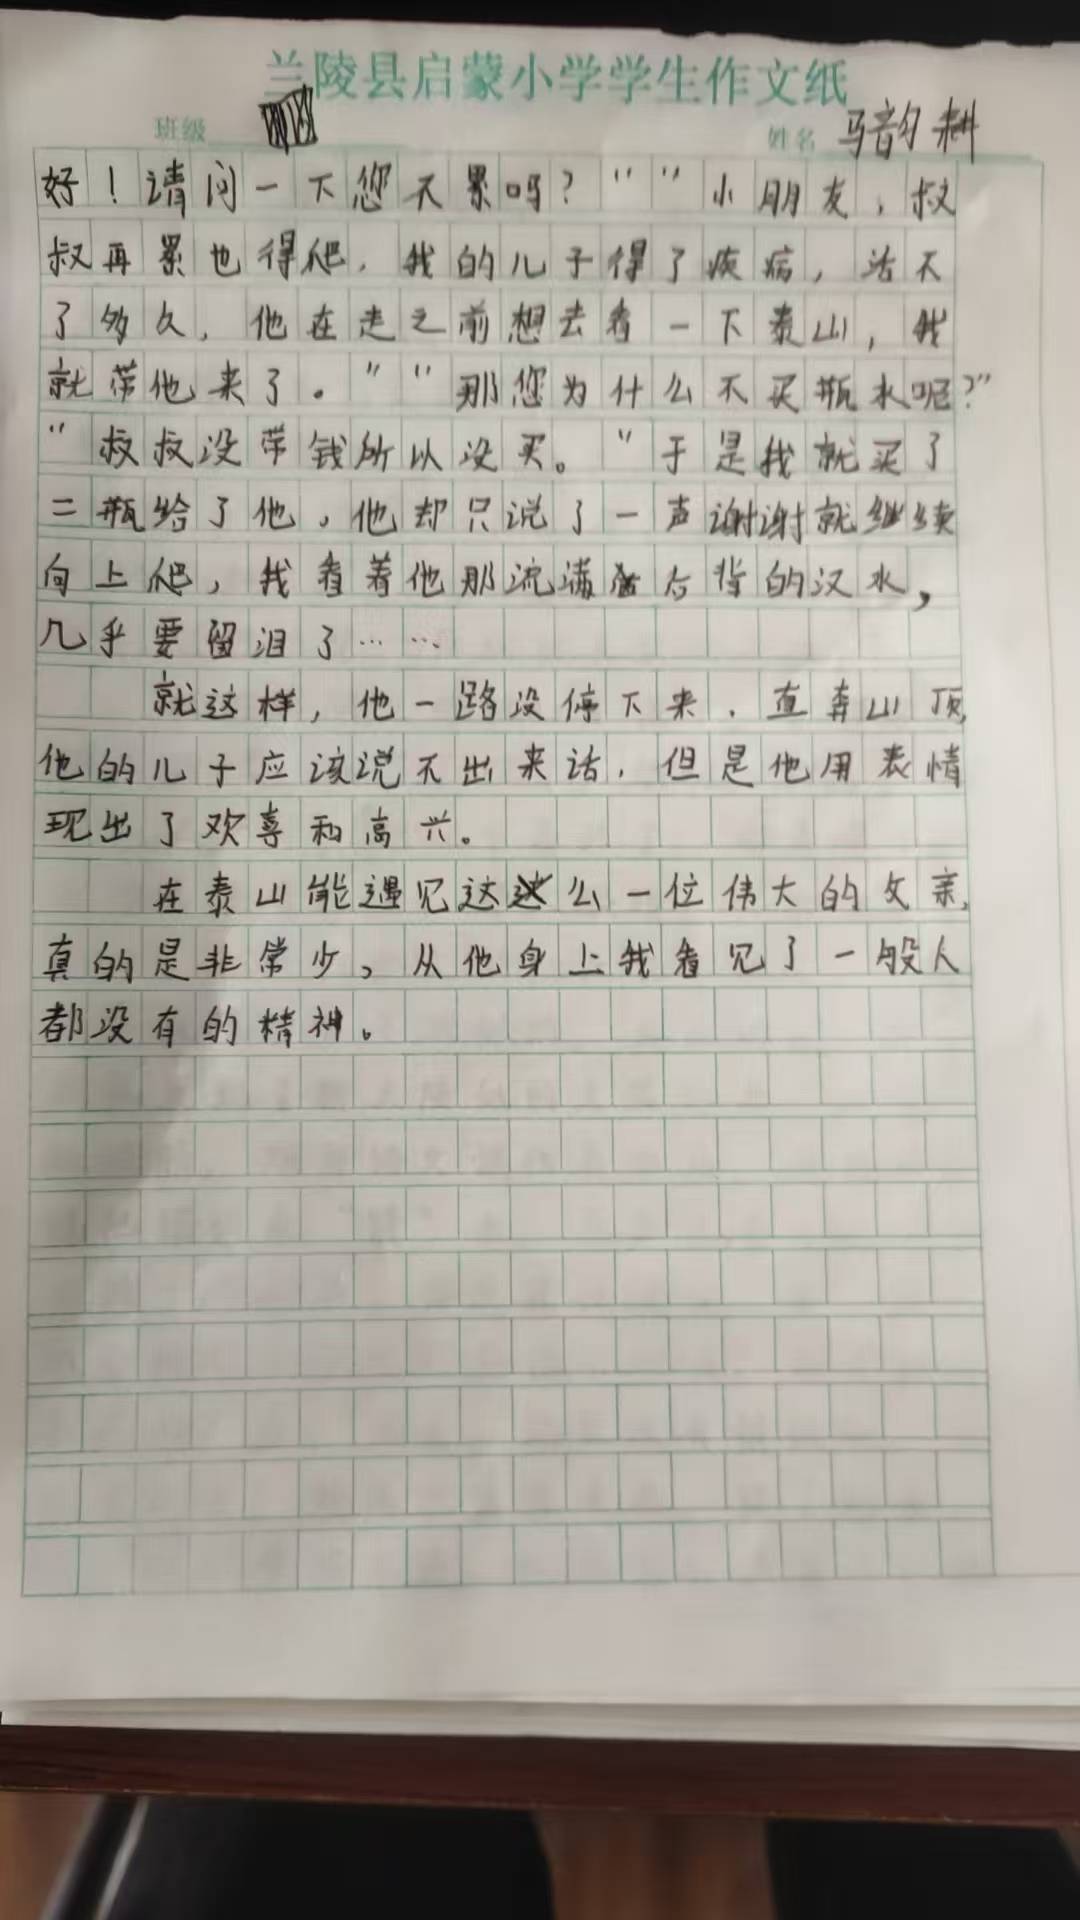 兰陵县启蒙小学学生作文纸
班级 姓名 马韵耕
好！请问一下您不累吗？""小朋友，叔
叔再累也得爬，我的儿子得了疾病，活不
了多久，他在走之前想去看一下泰山，我
就带他来了。""那您为什么不买瓶水呢？"
"叔叔没带钱所以没买。"于是我就买了
二瓶给了他，他却只说了一声谢谢就继续
向上爬，我看着他那流满后背的汉水，
几乎要留泪了……
就这样，他一路没停下来，直奔山顶，
他的儿子应该说不出来话，但是他用表情
现出了欢喜和高兴。
在泰山能遇见这么一位伟大的父亲，
真的是非常少，从他身上我看见了一般人
都没有的精神。